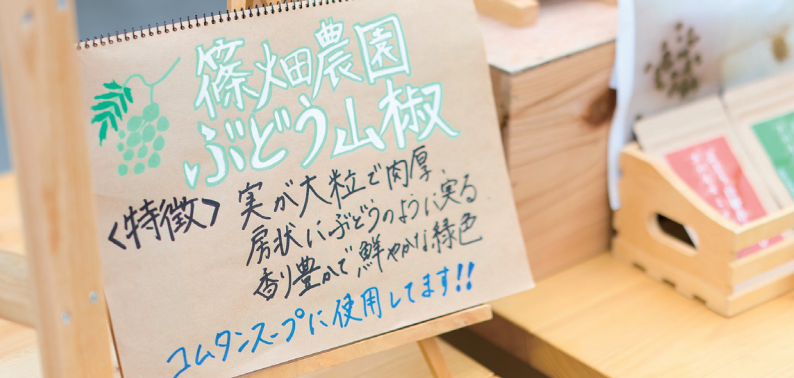 篠畑農園
ぶどう山椒
<特徴> 実が大粒で肉厚
房状にぶどうのように実る
香り豊かで鮮やかな緑色
コムタンスープに使用してます!!